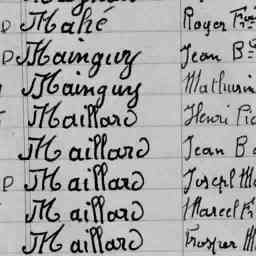 D Mahé Roger Fr
D Mainguy Jean B
Mainguy Mathurin
Maillard Henri Pie
Maillard Jean B
D Maillard Joseph Ma
Maillard Marcel Fr
Maillard Prosper M